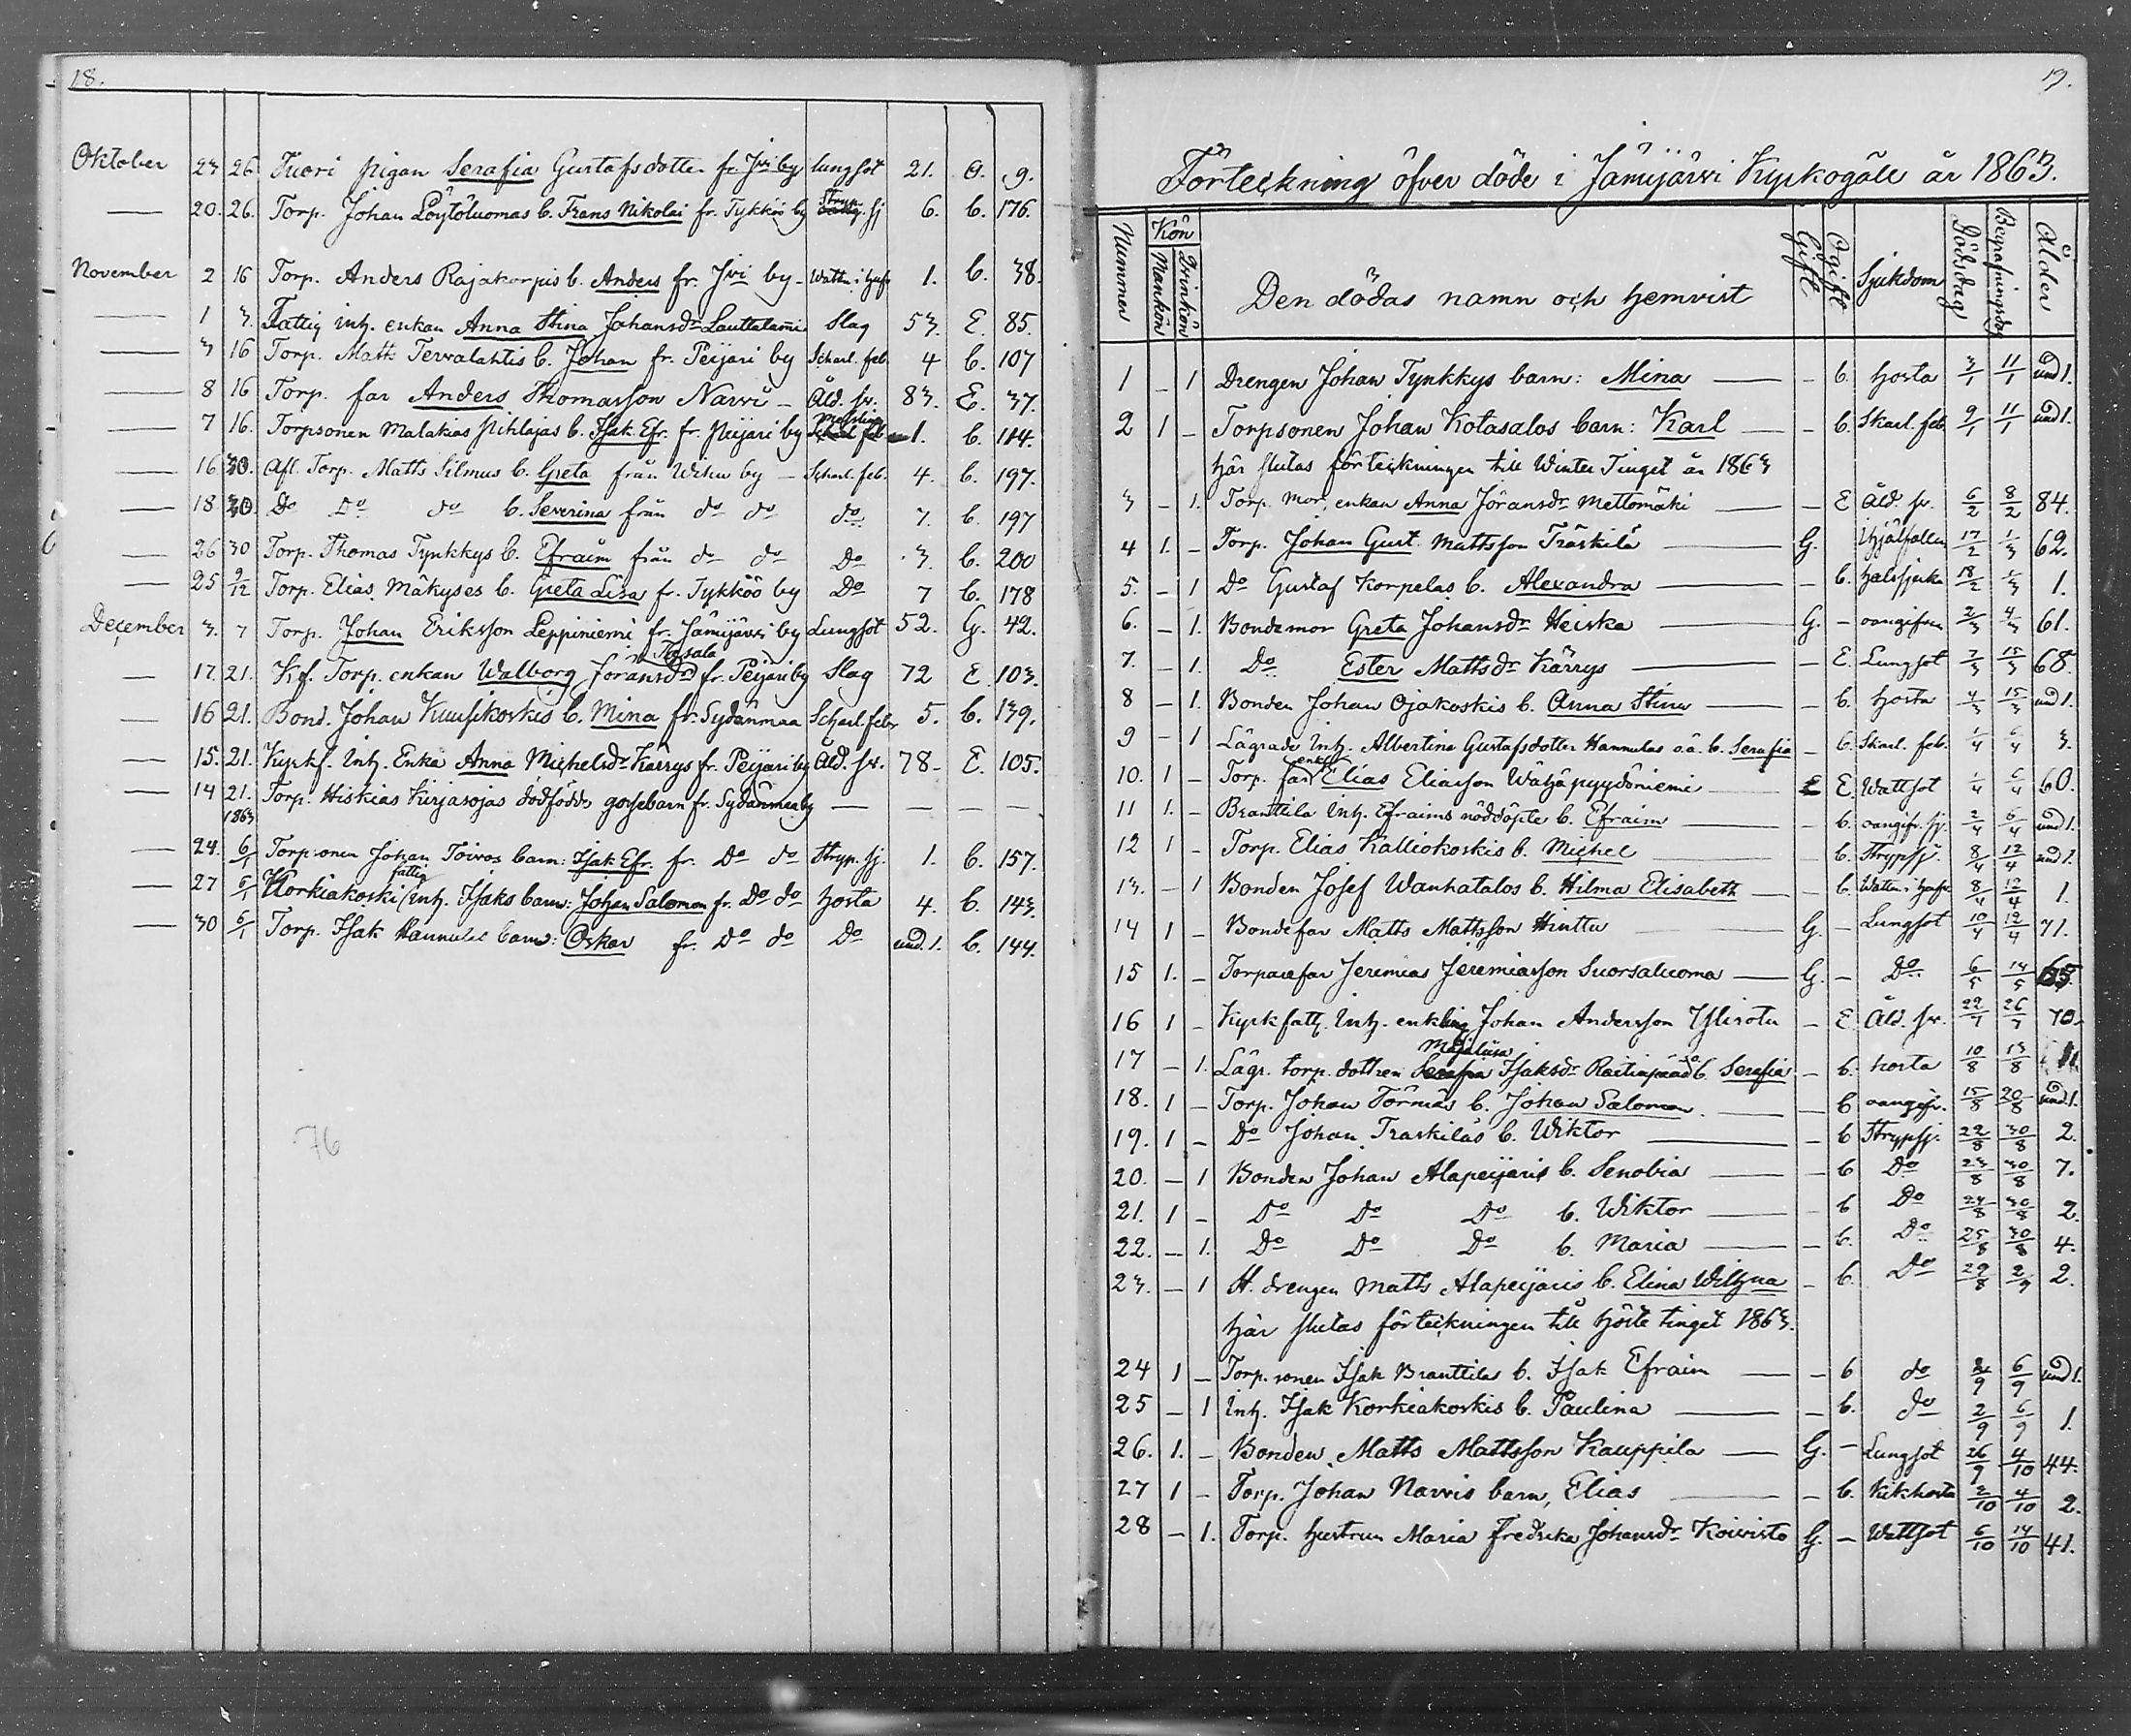 18.
Oktober 23 26. Tuori pigan Serafia Gustafsdotter fr. Jvi by lungsot 21. O. 9.
— 20. 26. Torp. Johan Löytöluomas b. Frans Nikolai fr. Tykköö by Stryp. sj 6. b. 176.
November 2 16 Torp. Anders Rajakorpis b. Anders fr. Jvi by - Watten i hufv 1. b. 38.
— 1 3. Fattig inh. enkan Anna Stina Johansdr Lauttalami Slag 53. E. 85.
— 3 16 Torp. Matts Terwalahtis b. Johan fr. Peijari by Scharl. feb. 4 b. 107
— 8 16 Torp. far Anders Thomasson Narwi - Åld. sv. 83. E. 37.
— 7 16. Torpsonen Malakias Pihlajas b. Isak Efr. fr. Peijari by Messling 1. b. 114.
— 16 30. Afl. Torp. Matts Silmus b. Greta från Wihu by — Scharl. feb. 4. b. 197.
— 18 30. Do Do do b. Severina från do do do 7. b. 197
— 26 30 Torp. Thomas Tynkkys b. Efraim från do do Do 3. b. 200
— 25 9/12 Torp. Elias Mäkyses b. Greta Lisa fr. Tykköö by Do 7 b. 178
December 3. 7 Torp. Johan Eriksson Leppiniemi fr. Jämijärvi by Lungsot 52. G. 42.
— 17. 21. Kf. Torp. enkan Walborg Joransdr fr. Peijari by Slag 72 E. 103.
— 16 21. Bond. Johan Kuusikoskis b. Mina fr. Sydänmaa Scharl. feb. 5. b. 139.
— 15. 21. Kyrkf. Inh. Enka Anna Michelsdr Kärrys fr. Peijari by Åld. sv. 78 - E. 105.
— 14 21. Torp. Hiskias Kirjasojas dödfödde gossebarn fr. Sydänmaa by — — — —
1863
— 24. 6/1 Torpsonen Johan Toivos barn: Isak Efr. fr. Do do Stryp. sj. 1. b. 157.
— 27 6/1 Korkiakoski fattig inh. Isaks barn: Johan Salomon fr. Do do hosta 4. b. 143.
— 30 6/1 Torp. Isak Hannulas barn: Oskar fr. Do do Do und. 1. b. 144.
76
19.
Förteckning öfver döde i Jämijärvi Kyrkogäll år 1863.
Nummer Kön Mankön Qvinkön Den dödas namn och hemvist Gift Ogift Sjukdom Dödsdag Begrafningsdag Ålder
1 - 1 Drengen Johan Tynkkys barn: Mina — - b. hosta 3/1 11/1 und 1.
2 1 - Torpsonen Johan Kotasalos barn: Karl — - b. Skarl. feb 9/1 11/1 und 1.
Här slutas förteckningen till Winter Tinget år 1863
3 - 1. Torp. mor, enkan Anna Jöransdr Mettomäki — - E Åld. sv. 6/2 8/2 84.
4 1. - Torp. Johan Gust. Mattsson Träskilä — G. Ihjälfallen 17/2 1/3 62.
5. - 1 Do Gustaf Korpelas b. Alexandra — - b. halssjuka 18/2 1/3 1.
6. - 1. Bondemor Greta Johansdr Heiska — G. - oangifven 2/3 4/3 61.
7. - 1. Do Ester Mattsdr Kärrys — - E. Lungsot 7/3 15/3 68.
8 - 1. Bonden Johan Ojakoskis b. Anna Stina — - b. hosta 4/3 15/3 und 1.
9 - 1 Lägrade Inh. Albertina Gustafsdotter Hannulas o.ä. b. Serafia - b. Skarl. feb. 1/4 6/4 3.
10. 1 - Torp. far enkl Elias Eliasson Wähäpyydöniemi — E. Wattsot 1/4 6/4 60.
11 1. - Branttila Inh. Efraims nöddöpte b. Efraim — - b. oangifv. sj. 2/4 6/4 und 1.
12 1 - Torp. Elias Kalliokoskis b. Michel — b. Strypsj. 8/4 12/4 und 1.
13. - 1 Bonden Josef Wanhatalos b. Hilma Elisabeth — - b. Watten i hufv. 8/4 12/4 1.
14 1 - Bondefar Matts Mattsson Hinttu — G. - Lungsot 10/4 12/4 71.
15 1. - Torparefar Jeremias Jeremiasson Suorsaluoma — G. - Do 6/5 14/5 65.
16 1 - Kyrkfatt. Inh. enkling Johan Andersson Ylirotu - E. Åld. sv. 22/7 26/7 70.
17 - 1. Lägr. torp. dottren Majalisa Isaksdr Raitinpää o.ä. b. Serafia - b. hosta 10/8 13/8
18. 1 - Torp. Johan Törmäs b. Johan Salomon — - b oangifv. 15/8 20/8 und. 1.
19. 1 - Do Johan Traskiläs b. Wiktor — - b Strypsj. 22/8 30/8 2.
20. - 1 Bonden Johan Alapeijaris b. Senobia — - b Do 23/8 30/8 7.
21. 1 - Do Do Do b. Wiktor — - b Do 24/8 30/8 2.
22. - 1. Do Do Do b. Maria — - b. Do 25/8 30/8 4.
23. - 1 H. drengen Matts Alapeijaris b. Elina Wilhna - b. Do 29/8 2/9 2.
Här slutas förteckningen till höste tinget 1863.
24 1 - Torp. sonen Isak Branttilas b. Isak Efraim — - b do 2/9 6/9 und 1.
25 - 1 Inh. Isak Korkiakoskis b. Paulina — - b. do 2/9 6/9 1.
26. 1. - Bonden Matts Mattsson Kauppila — G. - Lungsot 26/9 4/10 44.
27 1 - Torp. Johan Narvis barn, Elias — - b. Kikhosta 2/10 4/10 2.
28 - 1. Torp. hustrun Maria Fredrika Johansdr Koivisto G. - Wattsot 6/10 14/10 41.